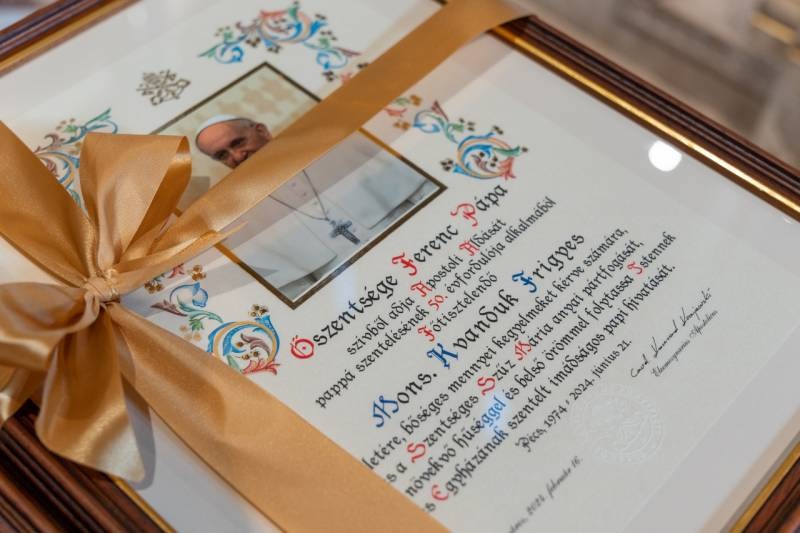 Őszentsége Ferenc Pápa
szívből adja Apostoli Áldását
pappá szentelésének 50. évfordulója alkalmából
Főtisztelendő
Mons. Kvanduk Frigyes
letére, bőséges mennyei kegyelmeket kérve számára,
s a Szentséges Szűz Mária anyai pártfogását,
növekvő hűséggel és belső örömmel folytassa Istennek
s Egyházának szentelt imádságos papi hivatását.
Pécs, 1974 - 2024. június 21.
2024. február 16.